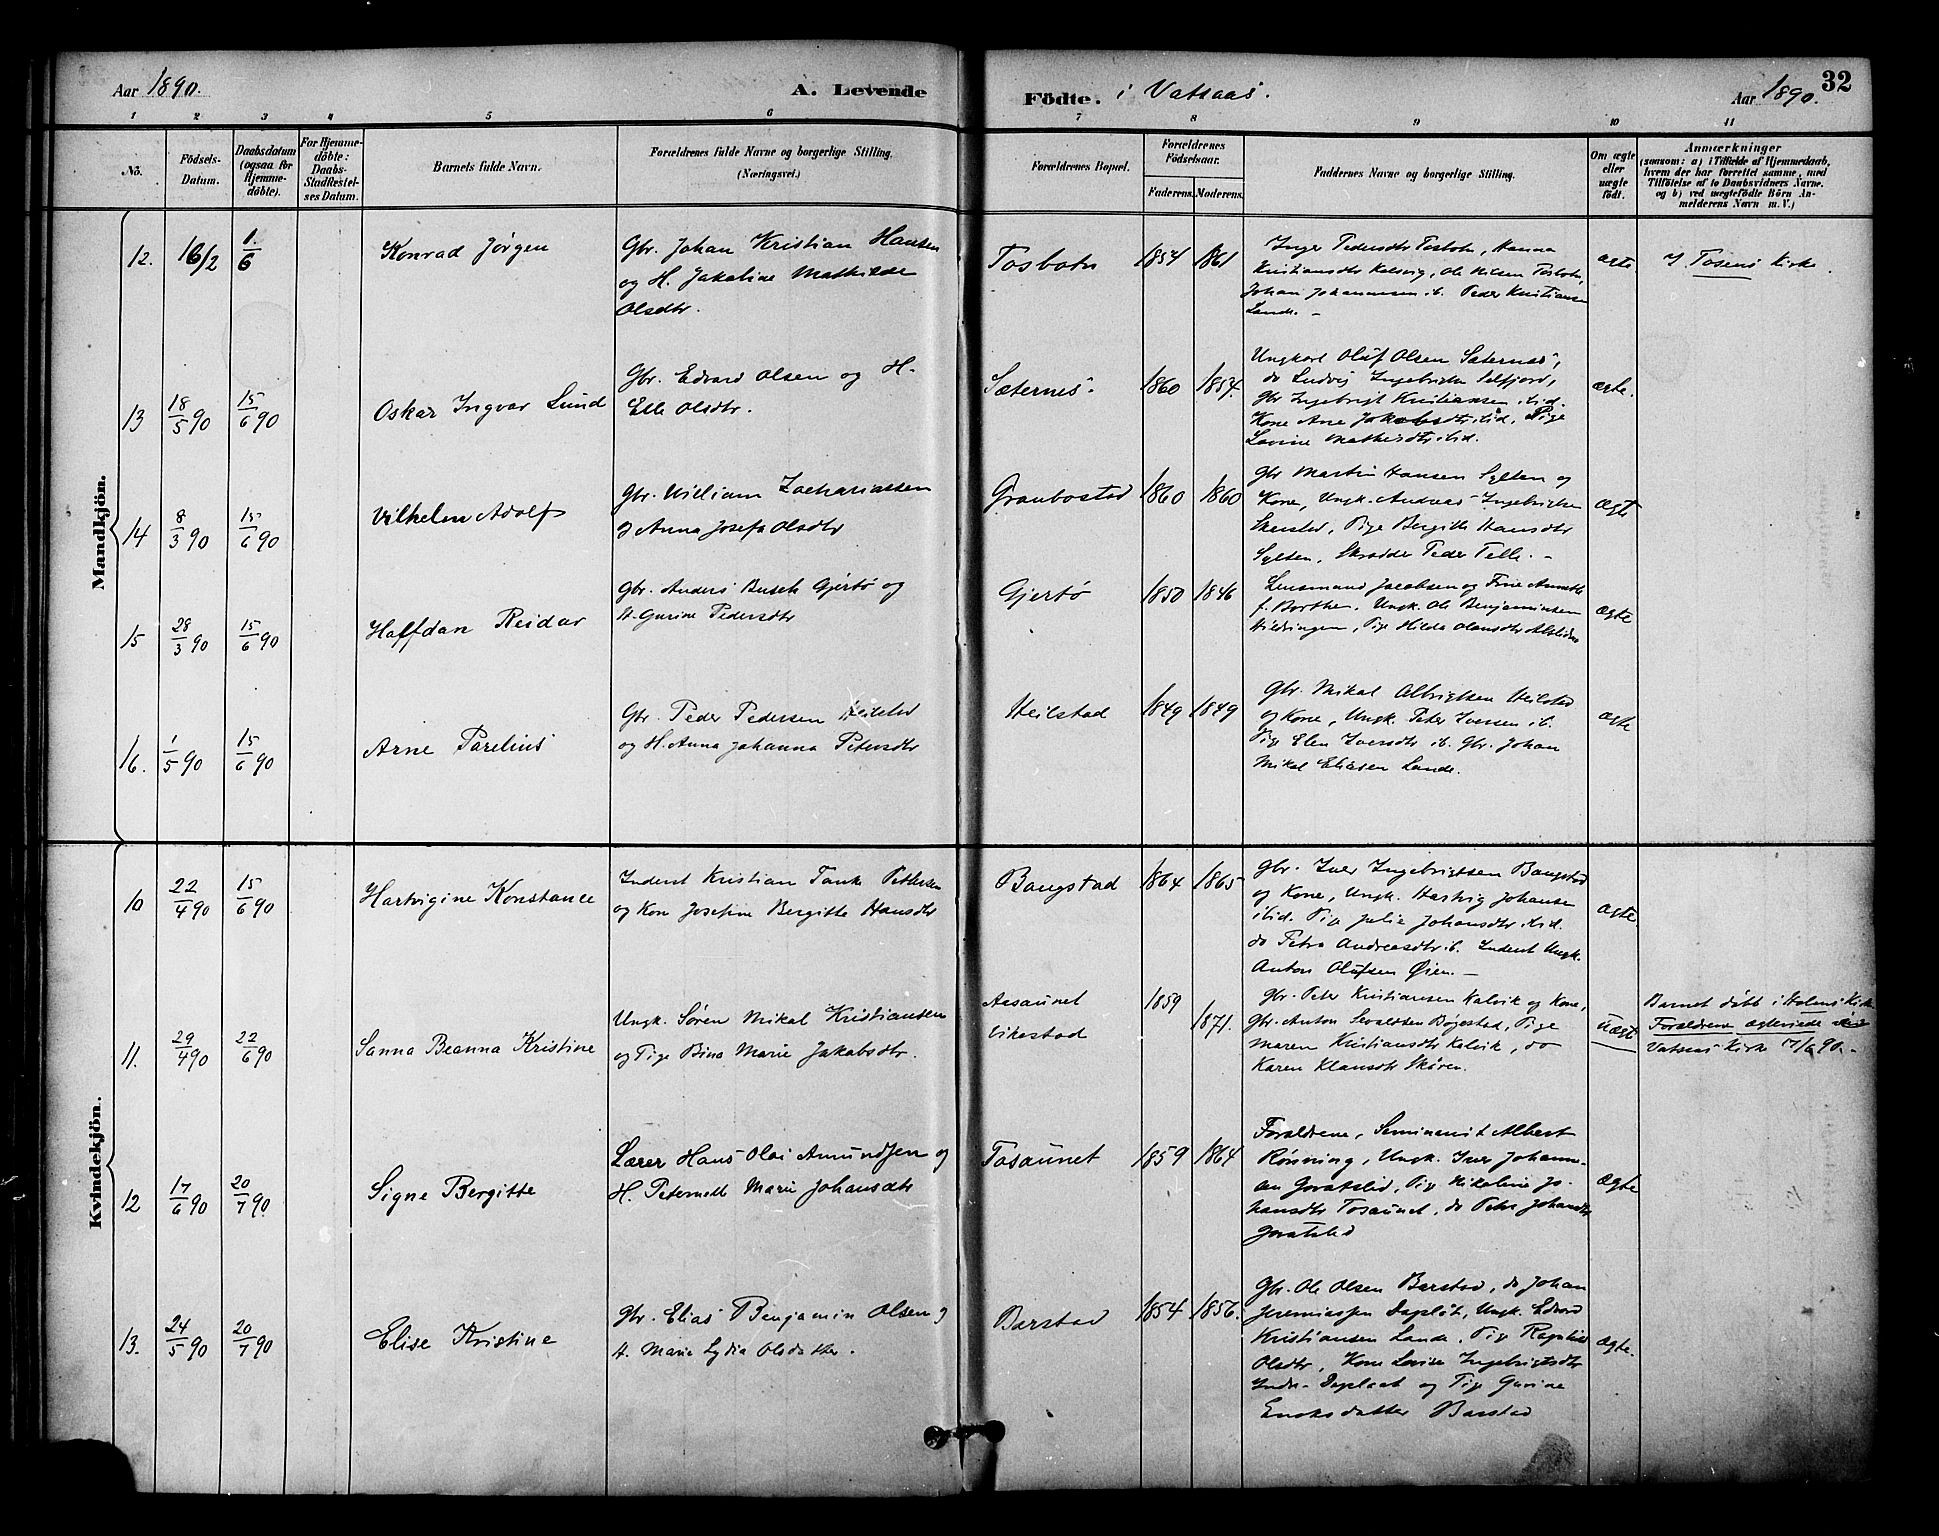 Aar 1890.
A. Levende
Födte. i Vatsaas.
Aar 1890.
32
1 2 3 4 5 6 7 8 9 10 11
No.
Födsels-
Datum.
Daabsdatum
(ogsaa for
Hjemme-
döbte).
For Hjemme-
döbte:
Daabs-
Stadfæstel-
ses Datum.
Barnets fulde Navn.
Forældrenes fulde Navne og borgerlige Stilling.
(Næringsvei.)
Forældrenes Bopæl.
Forældrenes
Födselsaar.
Faderens.
Moderens.
Faddernes Navne og borgerlige Stilling.
Om ægte
eller
uægte
födt.
Anmærkninger
(saasom: a) i Tilfælde af Hjemmedaab,
hvem der har forrettet samme, med
Tilföielse af to Daabsvidners Navne.
og b) ved uægtefödte Börn An-
melderens Navn m. V.)
Mandkjön.
12. 16/2 1./6 Konrad Jørgen
Gbr. Johan Kristian Hansen
og H. Jakobine Mathilde
Olsdtr.
Tosbotn 1854 1861
Inger Pedersdtr Tosbotn, Hanna
Kristiansdtr Kalvig, Ole Nilsen Tosbotn,
Johan Johannesen ib. Peder Kristiansen
Lande. –
ægte. I Tosens Kirke.
13 18/5 90 15/6 90 Oskar Ingvar Lund
Gbr. Edvard Olsen og H.
Elle Olsdtr.
Sæternes. 1860 1854.
Ungkarl Oluf Olsen Sæternæs,
do Ludvig Ingebrigtsen
Gbr Ingebrigt Kristiansen ibid.
Kone Ane Jakobsdtr ibid, Pige
Lovine ibid.
ægte.
14 8/3 90 15/6 90 Vilhelm Adolf
Gbr. William Zachariassen
og Anna Josefa Olsdtr
Graabostad 1860 1860
Gbr Martin Hansen Sylten og
Kone, Ungk. Andreas Ingebrigtsen
Skarsted, Pige Bergitte Hansdtr
Sylten, Skrædder Peder Telle. –
ægte
15 28/3 90 15/6 90 Halfdan Reidar
Gbr. Anders Busch Gjertø og
H. Gurine Pedersdtr
Gjertø 1850 1846
Lensmand Jacobsen og Frue
f. Borthen, Ungk. Ole Benjaminsen
Hildringen, Pige Hilda Olausdtr
ægte
16. 1/5 90 15/6 90 Arne Parelius
Gbr. Peder Pedersen Heilstad
og H. Anna Johanna Petersdtr
Heilstad 1849 1849
Gbr. Mikal Albrigtsen Heilstad
og Kone, Ungk. Peter Iversen ib.
Pige Elen Iversdtr ib. Gbr. Johan
Mikal Eliasen Lande.
ægte
Kvindekjön.
10 22/4 90 15/6 90 Hartvigine Konstance
Inderst Kristian Tank Pettersen
og Kon Josefine Bergitte Hansdtr
Bangstad 1864 1865
Gbr. Iver Ingebrigtsen Bangstad
og Kone, Ungk. Hartvig Johansen
ibid. Pige Julie Johansdtr ibid.
do Petra Andreasdtr ib. Inderst Ungk.
Anton Olufsen Øien. –
ægte.
11. 29/4 90 22/6 90 Sanna Beanna Kristine
Ungk. Søren Mikal Kristiansen
og Pige Bina Marie Jakobsdtr.
Aasaunet
Vikestad
1859
1871.
Gbr. Peter Kristiansen Kalvik og Kone,
Gbr. Anton Sevaldsen Bøgestad, Pige
Maren Kristiansdtr Kalvik, do
Karen Klausdtr Skaren.
Uægt
Barnet døbt i Holms Kirke
Forældrene ægteviede
Vatsaas Kirke 7/6 90. –
12 17/6 90 20/7 90. Signe Bergitte
Lærer Hans Olai Amundsen og
H. Peternelle Marie Johansdtr
Tosaunet 1859 1864
Forældrene, Seminarist Albert
Rønning, Ungk. Iver Johann-
sen, Pige Nikoline Jo-
hansdtr Tosaunet, do Petra Johansdtr
ægte
13. 24/5 90 20/7 90 Elise Kristine
Gbr. Elias Benjamin Olsen og
H. Marie Lydia Olsdatter.
Barstad 1854 1856.
Gbr. Ole Olsen Barstad, do Johan
Jeremiassen, Ungk. Edvard
Kristiansen Lande, Pige
Olsdtr, Kone Lovise Ingebrigtsdtr
og Pige Gurine
Enoksdatter Barstad
ægte.